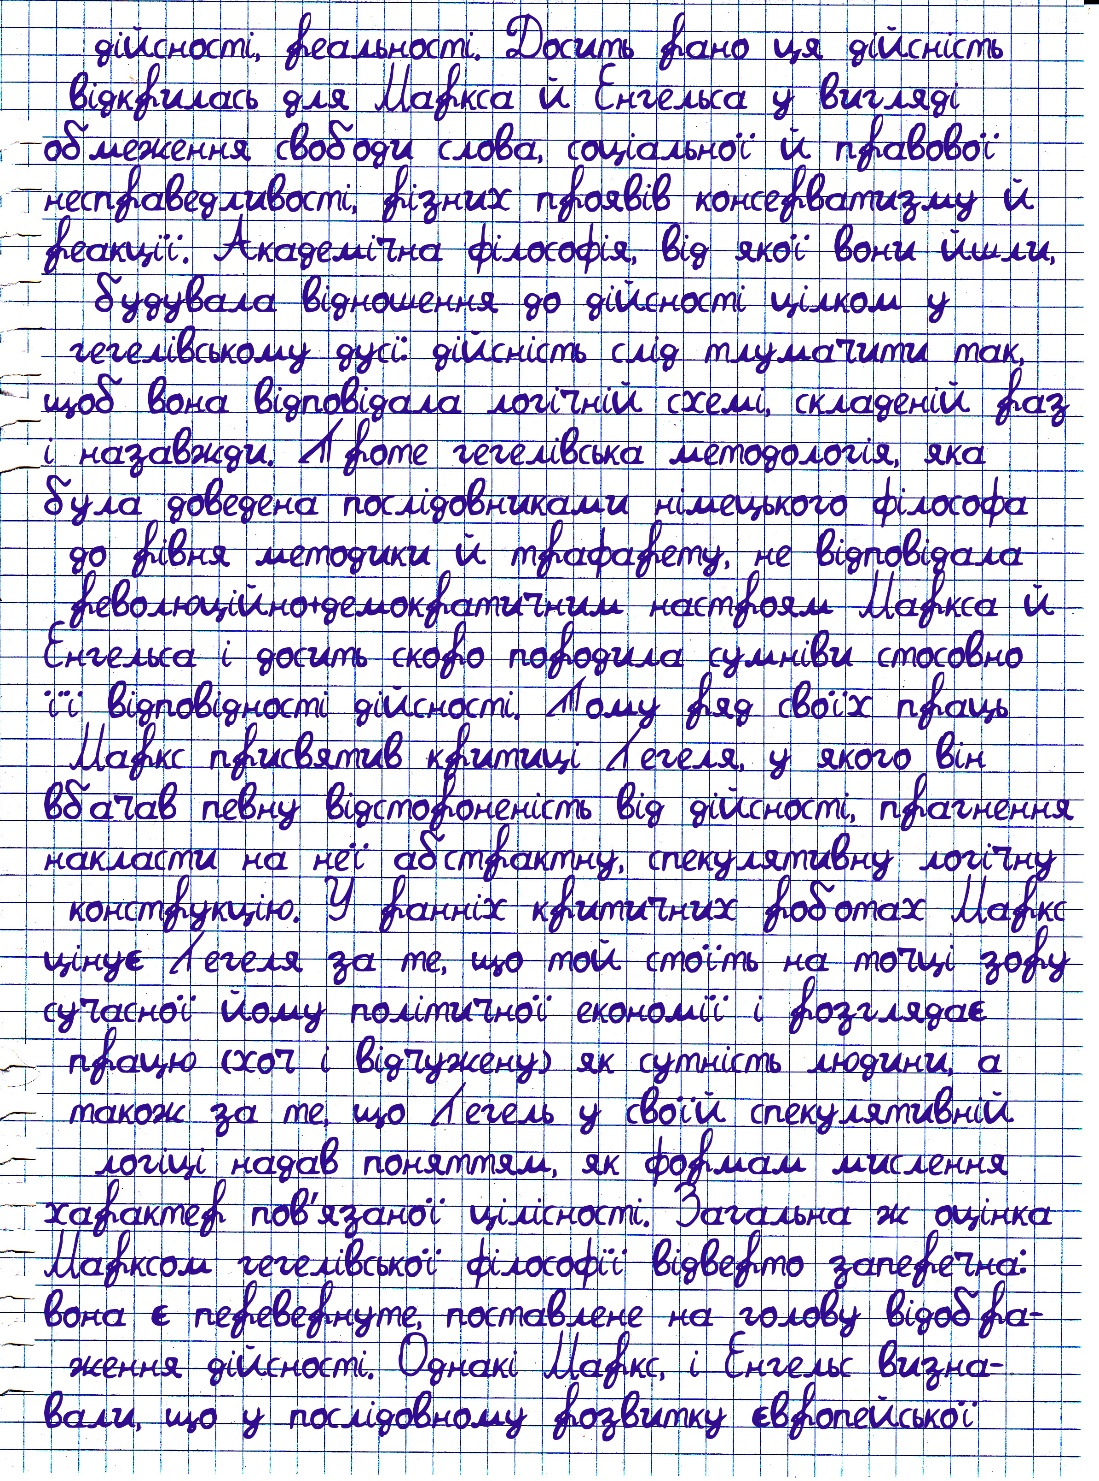 дійсності, реальності. Досить рано ця дійсність
відкрилась для Маркса й Енгельса у вигляді
обмеження свободи слова, соціальної й правової
несправедливості, різних проявів консерватизму й
реакції. Академічна філософія, від якої вони йшли,
будувала відношення до дійсності цілком у
гегелівському дусі: дійсність слід тлумачити так,
щоб вона відповідала логічній схемі, складеній раз
і назавжди. Проте гегелівська методологія, яка
була доведена послідовниками німецького філософа
до рівня методики й трафарету, не відповідала
революційно+демократичним настроям Маркса й
Енгельса і досить скоро породила сумніви стосовно
її відповідності дійсності. Тому ряд своїх праць
Маркс присвятив критиці Гегеля, у якого він
вбачав певну відстороненість від дійсності, прагнення
накласти на неї абстрактну, спекулятивну логічну
конструкцію. У ранніх критичних роботах Маркс
цінує Гегеля за те, що той стоїть на точці зору
сучасної йому політичної економії і розглядає
працю (хоч і відчужену) як сутність людини, а
також за те, що Гегель у своїй спекулятивній
логіці надав поняттям, як формам мислення
характер пов'язаної цілісності. Загальна ж оцінка
Марксом гегелівської філософії відверто заперечна:
вона є перевернуте, поставлене на голову відобра-
ження дійсності. Однакі Маркс, і Енгельс визна-
вали, що у послідовному розвитку європейської